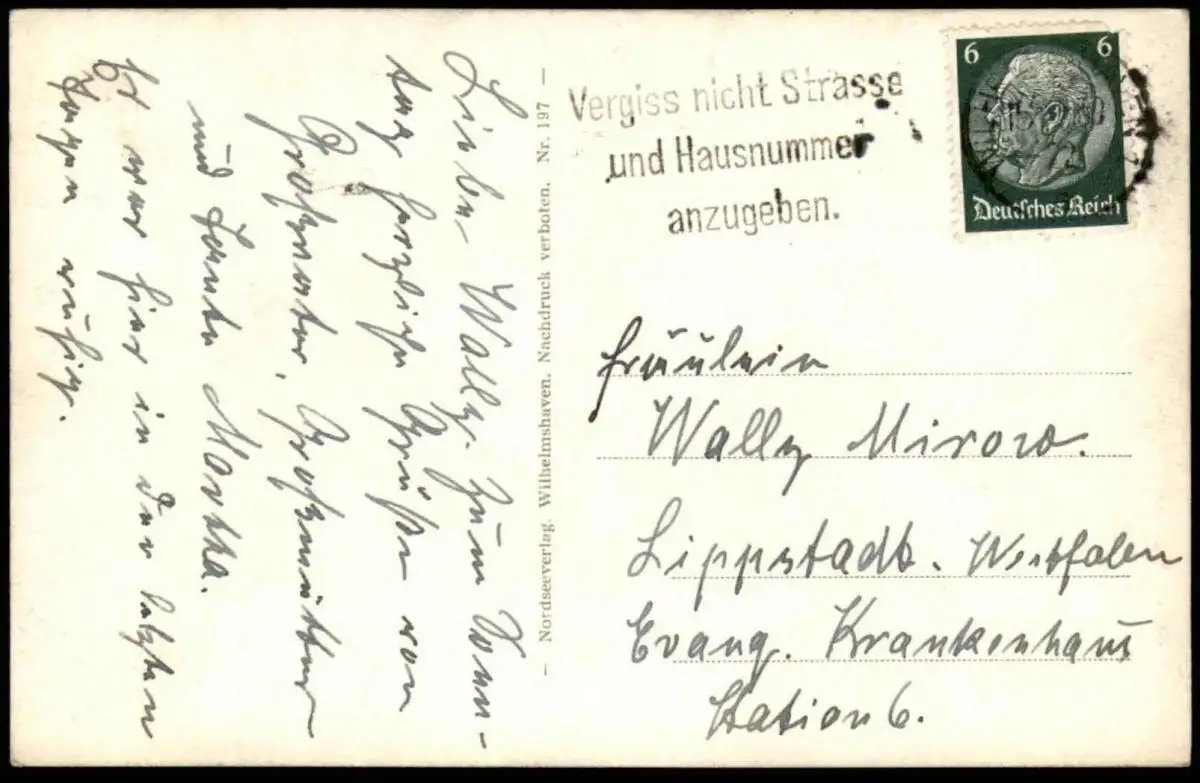 Liebe Wally. Zum Sonn-
tag herzliche Grüße von
Großvater, Großmutter
und Tante Martha.
Es war hier in den letzten
Tagen ruhig.
- Nordseeverlag. Wilhelmshaven. Nachdruck verboten. Nr. 197 -
Vergiss nicht Strasse
und Hausnummer
anzugeben.
6 6
Deutsches Reich
Fräulein
Wally
Lippstadt. Westfalen
Evang. Krankenhaus
Station 6.